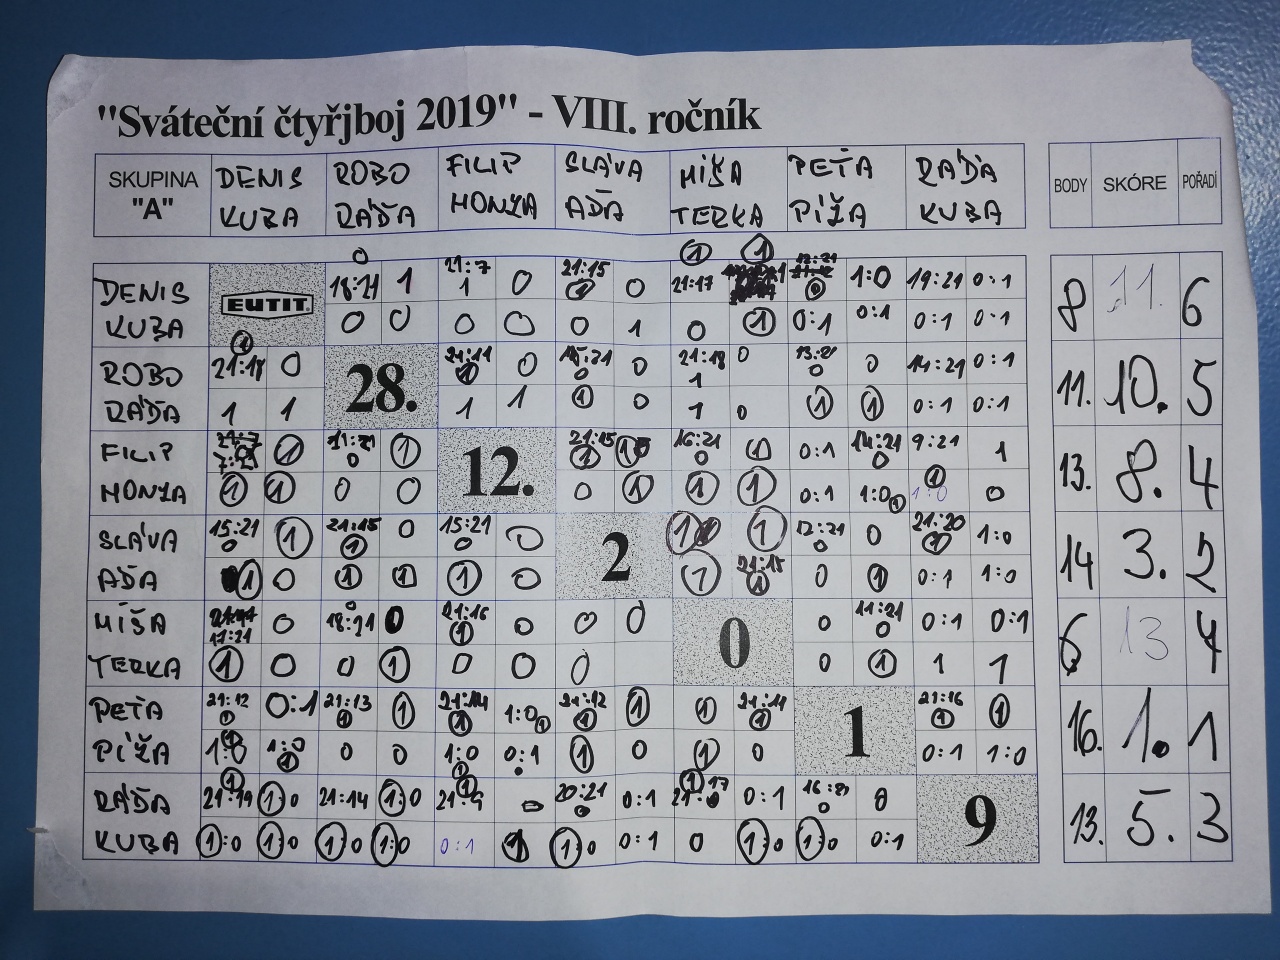 "Sváteční čtyřjboj 2019" - VIII. ročník
SKUPINA "A" DENIS KUBA ROBO RÁĎA FILIP HONZA SLÁVA AĎA MÍŠA TERKA PEŤA PÍŽA RÁĎA KUBA BODY SKÓRE POŘADÍ
DENIS EUTIT 18:21 1 21:7 0 21:15 0 21:17 1:0 19:21 0:1
KUBA 0 0 0 0 0 1 0 1 0:1 0:1 0:1 0:1
8 11. 6
ROBO 21:18 0 28. 21:11 0 0 21:18 0 0 14:21 0:1
RÁĎA 1 1 1 1 1 0 1 0 1 1 0:1 0:1
11. 10. 5
FILIP 7:21 1 11:21 1 12. 21:15 16:21 1 0:1 14:21 9:21 1
HONZA 1 1 0 0 0 1 1 1 0:1 1:0 1:0 0
13. 8. 4
SLÁVA 15:21 1 21:15 0 15:21 0 2 1 12:21 0 21:20 1:0
AĎA 1 0 1 1 1 0 1 21:15 0 1 0:1 1:0
14 3. 2
MÍŠA 17:21 0 18:21 0 21:16 0 0 0 0 0 11:21 0:1 0:1
TERKA 1 0 0 1 0 0 0 0 1 1 1
6 13
PEŤA 21:12 0:1 21:13 1 21:14 1:0 21:12 1 1 21:11 1 21:16 1
PÍŽA 1:0 1:0 0 0 1:0 0:1 1 0 1 0 0:1 1:0
16. 1. 1
RÁĎA 21:19 1:0 21:14 1:0 21:9 0 20:21 0:1 0:1 16:21 0 9
KUBA 1:0 1:0 1:0 1:0 0:1 1 1:0 0:1 0 1:0 1:0 0:1
13. 5. 3